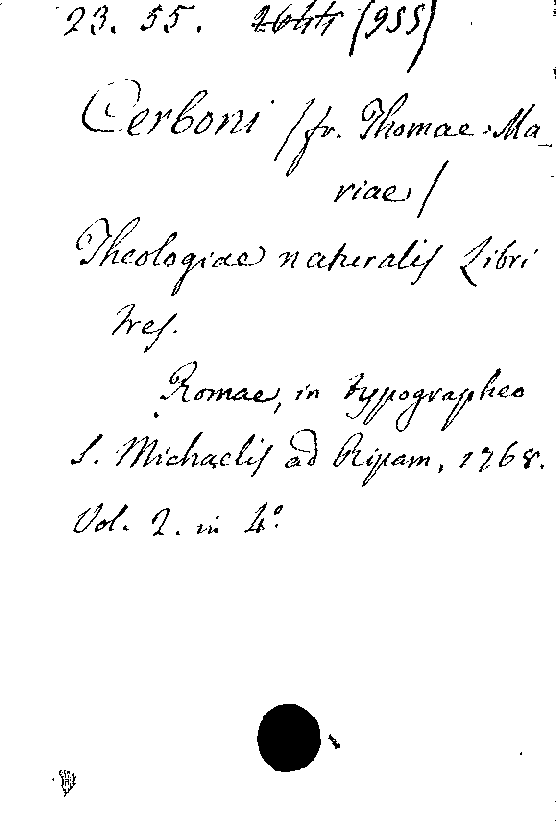 23. 55. (955)
Cerboni /fr. Thomae-Ma-
riae/
Theologiae naturalis Libri
tres.
Romae, in typographeo
S. Michaelis ad Ripam, 1768.
Vol. 2. in 4º